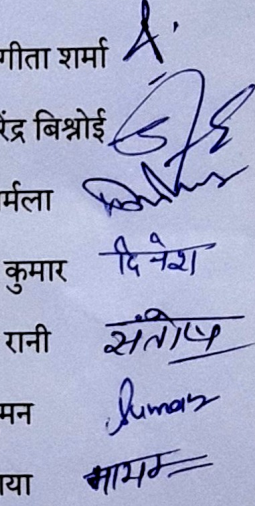 गीता शर्मा A.
रेंद्र बिश्नोई
र्मला
कुमार दिनेश
रानी संतोष
मन Suman
या